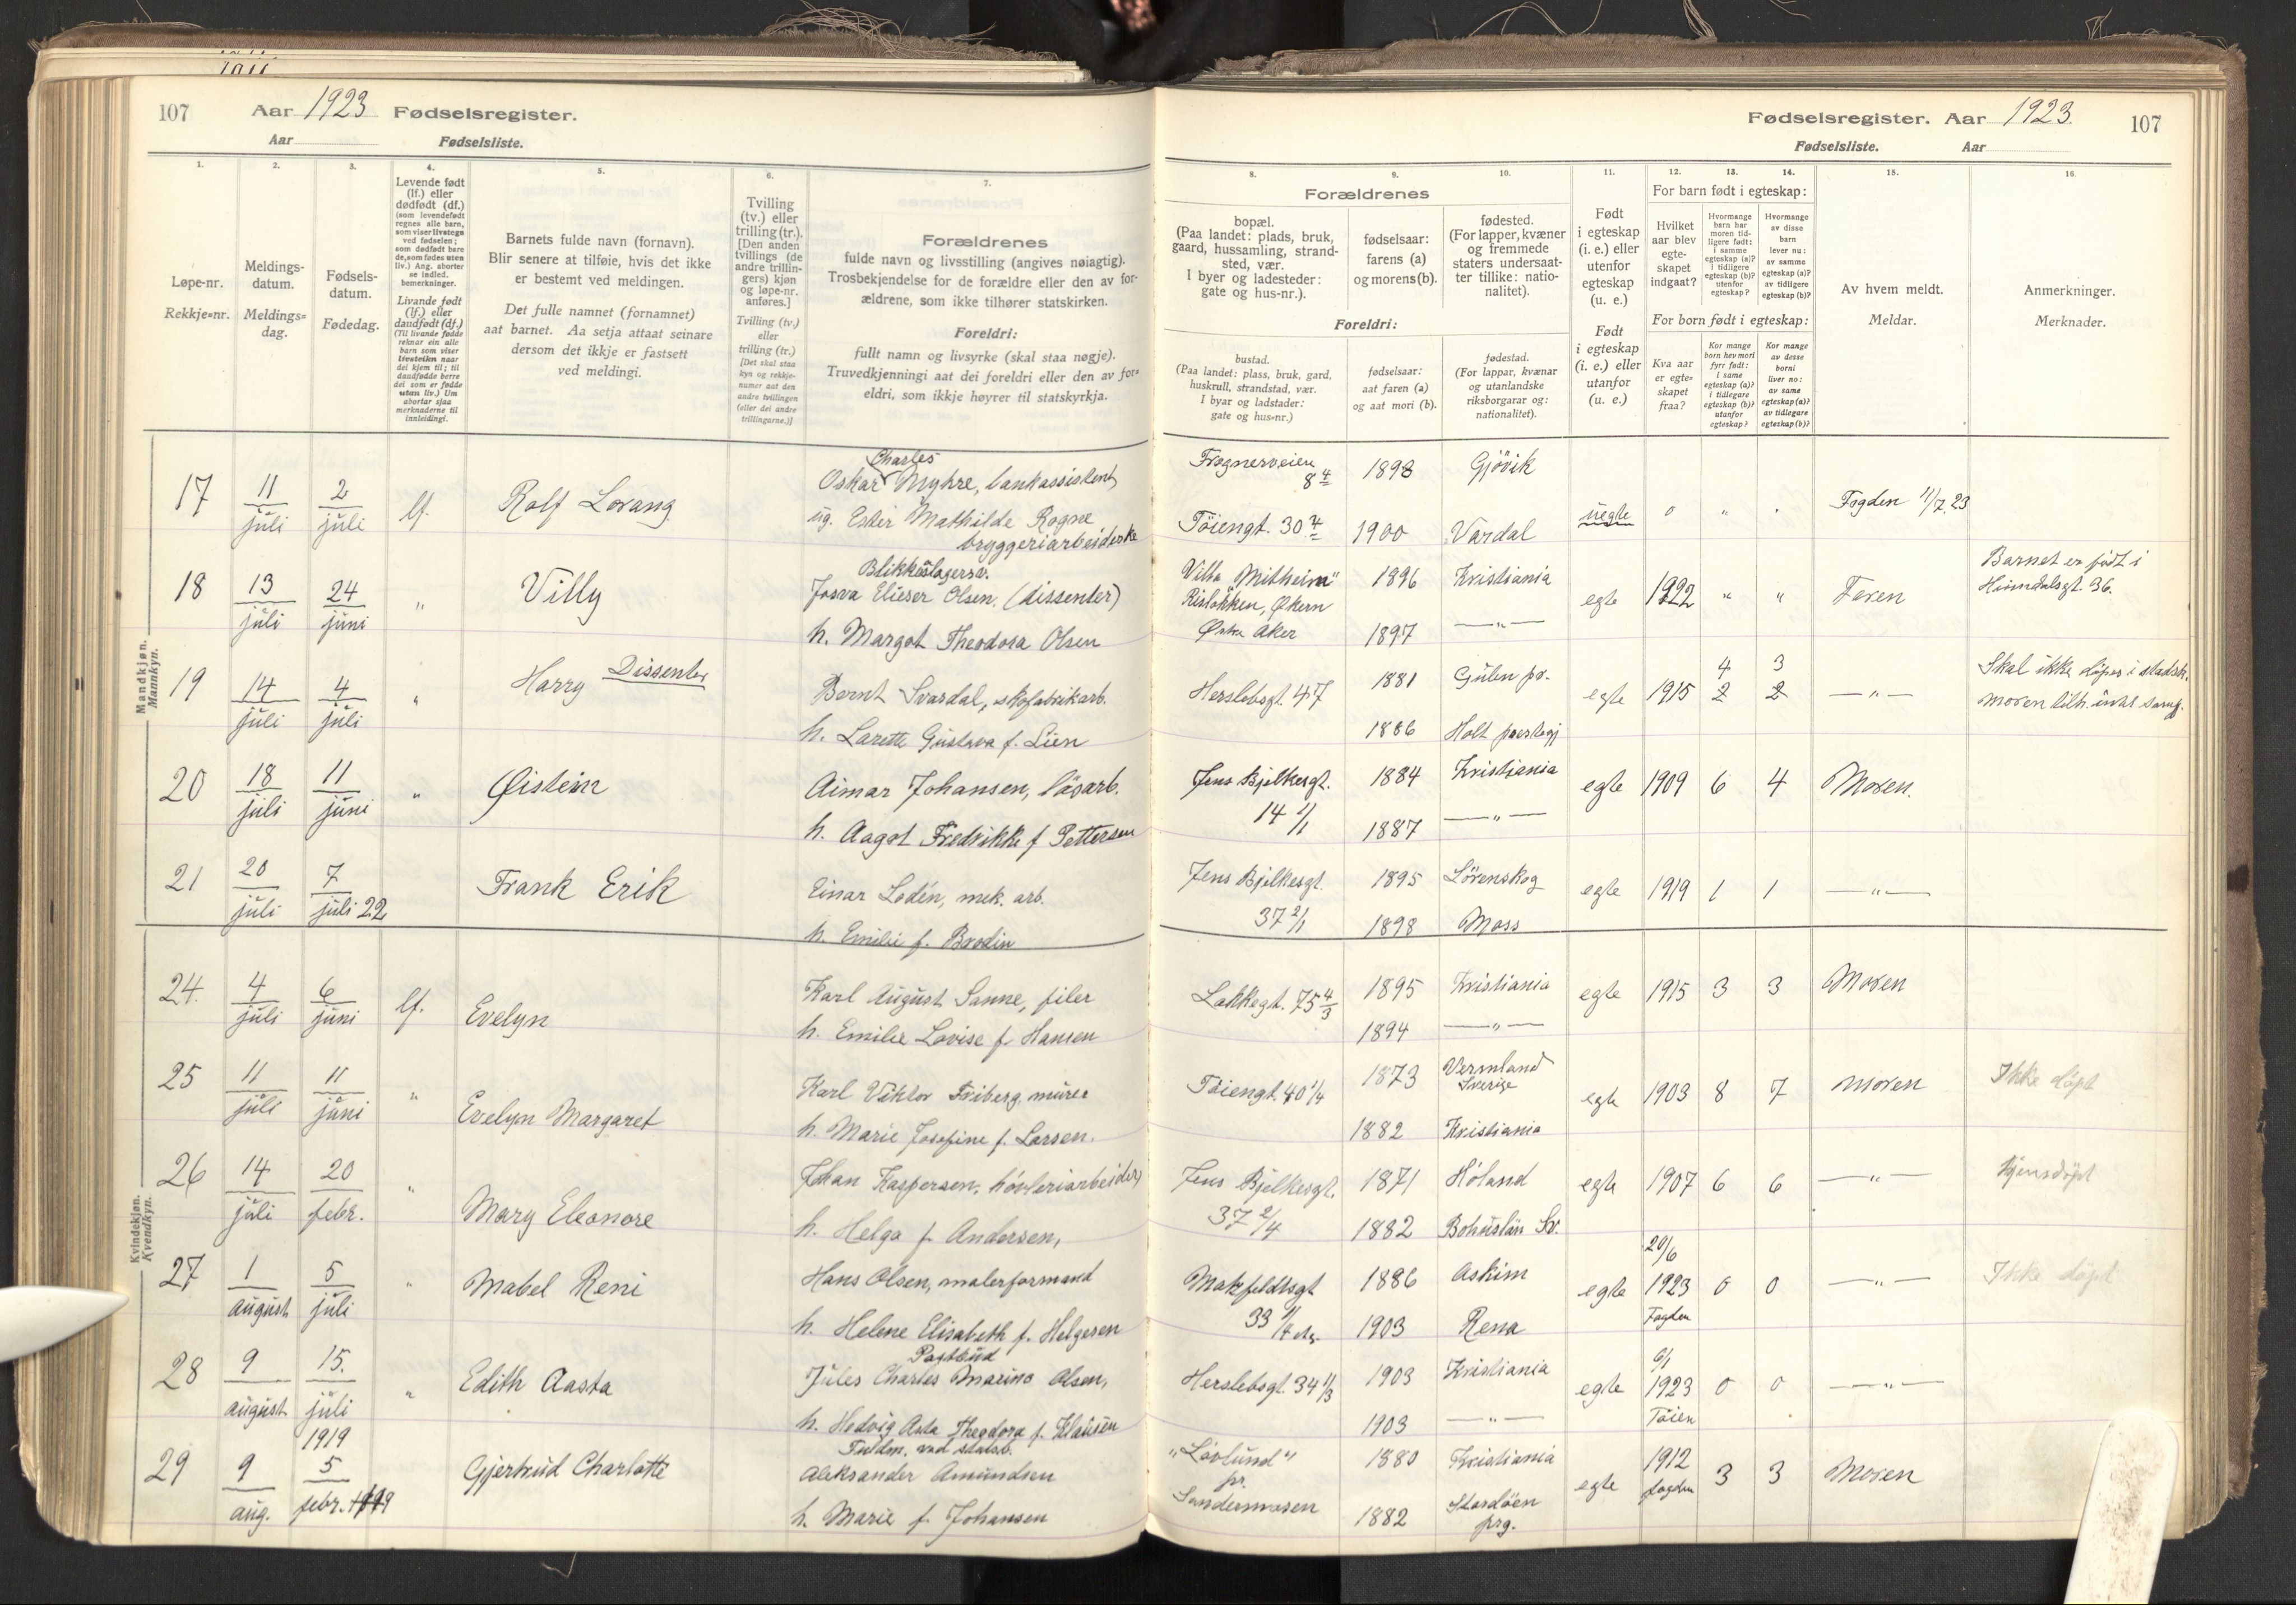 107 Aar 1923 Fødselsregister.
Aar Fødselsliste.
1. 2. 3. 4. 5. 6. 7.
Løpe-nr.
Rekkje=nr.
Meldings-
datum.
Meldings=
dag.
Fødsels-
datum.
Fødedag.
Levende født
(lf.) eller
dødfødt (df.)
(som levendefødt
regnes alle barn,
som viser livstegn
ved fødselen;
som dødfødt bare
de, som fødes uten
liv.) Ang. aborter
se indled.
bemerkninger.
Livande født
(lf.) eller
daudfødt (df.)
(Til livande fødde
reknar ein alle
barn som viser
livsteikn naar
dei kjem til; til
daudfødde berre
dei som er fødde
utan liv.) Um
abortar sjaa
merknaderne til
innleidingi.
Barnets fulde navn (fornavn).
Blir senere at tilføie, hvis det ikke
er bestemt ved meldingen.
Det fulle namnet (fornamnet)
aat barnet. Aa setja attaat seinare
dersom det ikkje er fastsett
ved meldingi.
Tvilling
(tv.) eller
trilling (tr.).
[Den anden
tvillings (de
andre trillin-
gers) kjøn
og løpe-nr.
anføres.]
Tvilling (tv.)
eller
trilling (tr.)
[Det skal staa
kyn og rekkje-
numer aat den
andre tvillingen
(eller dei andre
trillingarne.)]
Forældrenes
fulde navn og livsstilling (angives nøiagtig).
Trosbekjendelse for de forældre eller den av for-
ældrene, som ikke tilhører statskirken.
Foreldri:
fullt namn og livsyrke (skal staa nøgje).
Truvedkjenningi aat dei foreldri eller den av for=
eldri, som ikkje høyrer til statskyrkja.
Mandkjøn.
Mannkyn.
17 11 juli 2 juli lf. Rolf Lorang
Charles
Oskar Myhre, bankassistent
ug. Ester Mathilde Rogne
bryggeriarbeiderske
18 13 juli 24 juni " Villy
Blikkslagersv.
Josva Elieser Olsen. (dissenter)
h. Margot Theodora Olsen
19 14 juli 4 juli " Harry Dissenter
Bernt Svardal, skofabrikarb.
h. Larette Gustava f. Lien
20 18 juli 11 juni " Øistein
Aimar Johansen, løsarb.
h. Aagot Fredrikke f Pettersen
21 20 juli 7 juli 22 Frank Erik
Einar Lodén, mek. arb.
h. Emilie f. Brodin
Kvindekjøn.
Kvendkyn.
24. 4 juli 6 juni lf. Evelyn
Karl August Sanne, filer
h. Emilie Lovise f Hansen
25 11 juli 11 juni " Evelyn Margaret
Karl Viktor Friberg, murer
h. Marie Josefine f. Larsen.
26 14 juli 20 febr. " Mary Eleonore
Johan Kaspersen, høvleriarbeider,
h. Helga f. Andersen,
27 1 august 5 juli " Mabel Reni
Hans Olsen, malerformand
h. Helene Elisabeth f. Helgesen
28 9 august 15. juli " Edith Aasta
Postbud
Jules Charles Marino Olsen,
h. Hedvig Asta Theodora f. Klausen
29 9 aug. 1919 5 febr. 1919 Gjertrud Charlotte
Fuldm. ved statsb.
Aleksander Amundsen
h. Marie f. Johansen
Fødselsregister. Aar 1923. 107
Fødselsliste. Aar
8. 9. 10. 11. 12. 13. 14. 15. 16.
Forældrenes
bopæl.
(Paa landet: plads, bruk,
gaard, hussamling, strand-
sted, vær.
I byer og ladesteder:
gate og hus-nr.).
fødselsaar:
farens (a)
og morens (b).
fødested.
(For lapper, kvæner
og fremmede
staters undersaat-
ter tillike: natio-
nalitet).
Foreldri:
bustad.
(Paa landet: plass, bruk, gard,
huskrull, strandstad, vær.
I byar og ladstader:
gate og hus=nr.)
fødselsaar:
aat faren (a)
og aat mori (b).
fødestad.
(For lappar, kvænar
og utanlandske
riksborgarar og:
nationalitet).
Født
i egteskap
(i. e.) eller
utenfor
egteskap
(u. e.)
Født
i egteskap
(i. e.) eller
utanfor
(u. e.)
For barn født i egteskap:
Hvilket
aar blev
egte-
skapet
indgaat?
Hvormange
barn har
moren tid-
ligere født:
i samme
egteskap (a)?
i tidligere
egteskap (b)?
utenfor
egteskap?
Hvormange
av disse
barn
lever nu:
av samme
egteskap (a)?
av tidligere
egteskap (b)?
For born født i egteskap:
Kva aar
er egte-
skapet
fraa?
Kor mange
born hev mori
fyrr født:
i same
egteskap (a)?
i tidlegare
egteskap (b)?
utanfor
egteskap?
Kor mange
av desse
borni
liver no:
av same
egteskap (a)?
av tidlegare
egteskap (b)?
Av hvem meldt.
Meldar.
Anmerkninger.
Merknader.
Frognerveien 8 4 1898 Gjøvik
Tøiengt. 30 4 1900 Vardal uegte 0 " " Fogden 11/7.23
Villa "Mitheim" 1896 Kristiania
Risløkken, Økern egte 1922 " " Faren
Østre Aker 1897 — " —
Barnet er født i
Heimdalsgt. 36.
Herslebsgt. 47 1881 Gulen pr.
egte 1915 4 2 3 2 — " —
1886 Holt prestegj
Skal ikke døpes i statsk.
Moren tilh.
Jens Bjelkesgt. 1884 Kristiania
14 1/1 1887 — " — egte 1909 6 4 Moren.
Jens Bjelkesgt. 1895 Lørenskog
37 2/1 1898 Moss egte 1919 1 1 — " —
Lakkegt. 75 4/3 1895 Kristiania egte 1915 3 3 Moren
1894 — " —
Tøiengt. 40 1/4 1873 Vermland
Sverige egte 1903 8 7 Moren Ikke døpt
1882 Kristiania
Jens Bjelkesgt. 1871 Høland egte 1907 6 6 — " — Hjemdøpt
37 2/4 1882 Bohuslän Sv.
Motzfeldtsgt 1886 Askim egte 20/6 1923 0 0 — " — Ikke døpt
33 1903 Rena Fogden
Herslebsgt. 34 1/3 1903 Kristiania egte 6/1 1923 0 0 — " —
1903 — " — Tøien
"Løvlund" 1880 Kristiania 1912
pr. egte fogden 3 3 Moren
Sandermosen 1882 Stordøen
prg.